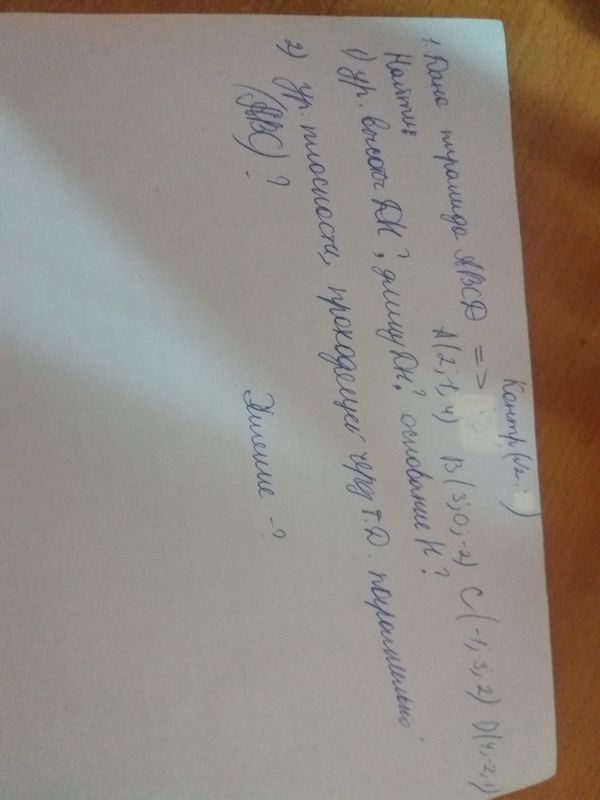 Контр
1. Дана пирамида ABCD =>
A(2; 1; 4) B(3; 0; -2) C(-1; 3; 2) D(4; -2; 1)
Найти:
1) ур. высоты DH?, длину DH? основание H?
2) ур. плоскости, проходящей через т. D. параллельно
(ABC)?
Решение -?